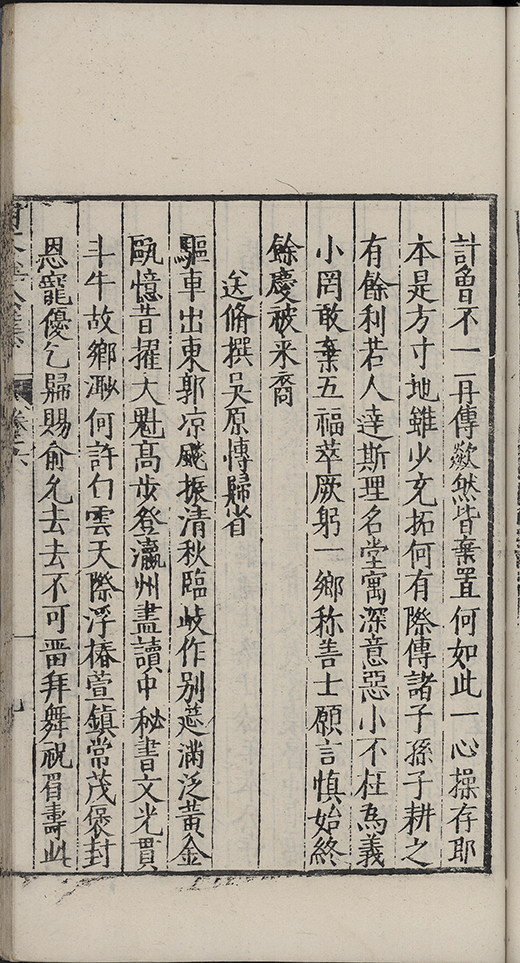 計曾不一再傳歘然皆棄置何如此一心操存耶
本是方寸地雖少充拓何有際傳諸子孫子耕之
有餘利若人達斯理名堂寓深意惡小不枉為義
小罔敢棄五福萃厥躬一鄉称善士願言慎始終
餘慶被来裔
送脩撰吳原愽歸省
驅車出東郭凉飈振清秋臨岐作别筵滿泛黄金
甌憶昔擢大魁髙步登瀛州盡讀中秘書文光貫
斗牛故鄉渺何許白雲天際浮椿萱鎮常茂褒封
恩寵優乞歸賜俞允去去不可畱拜舞祝眉壽此
九